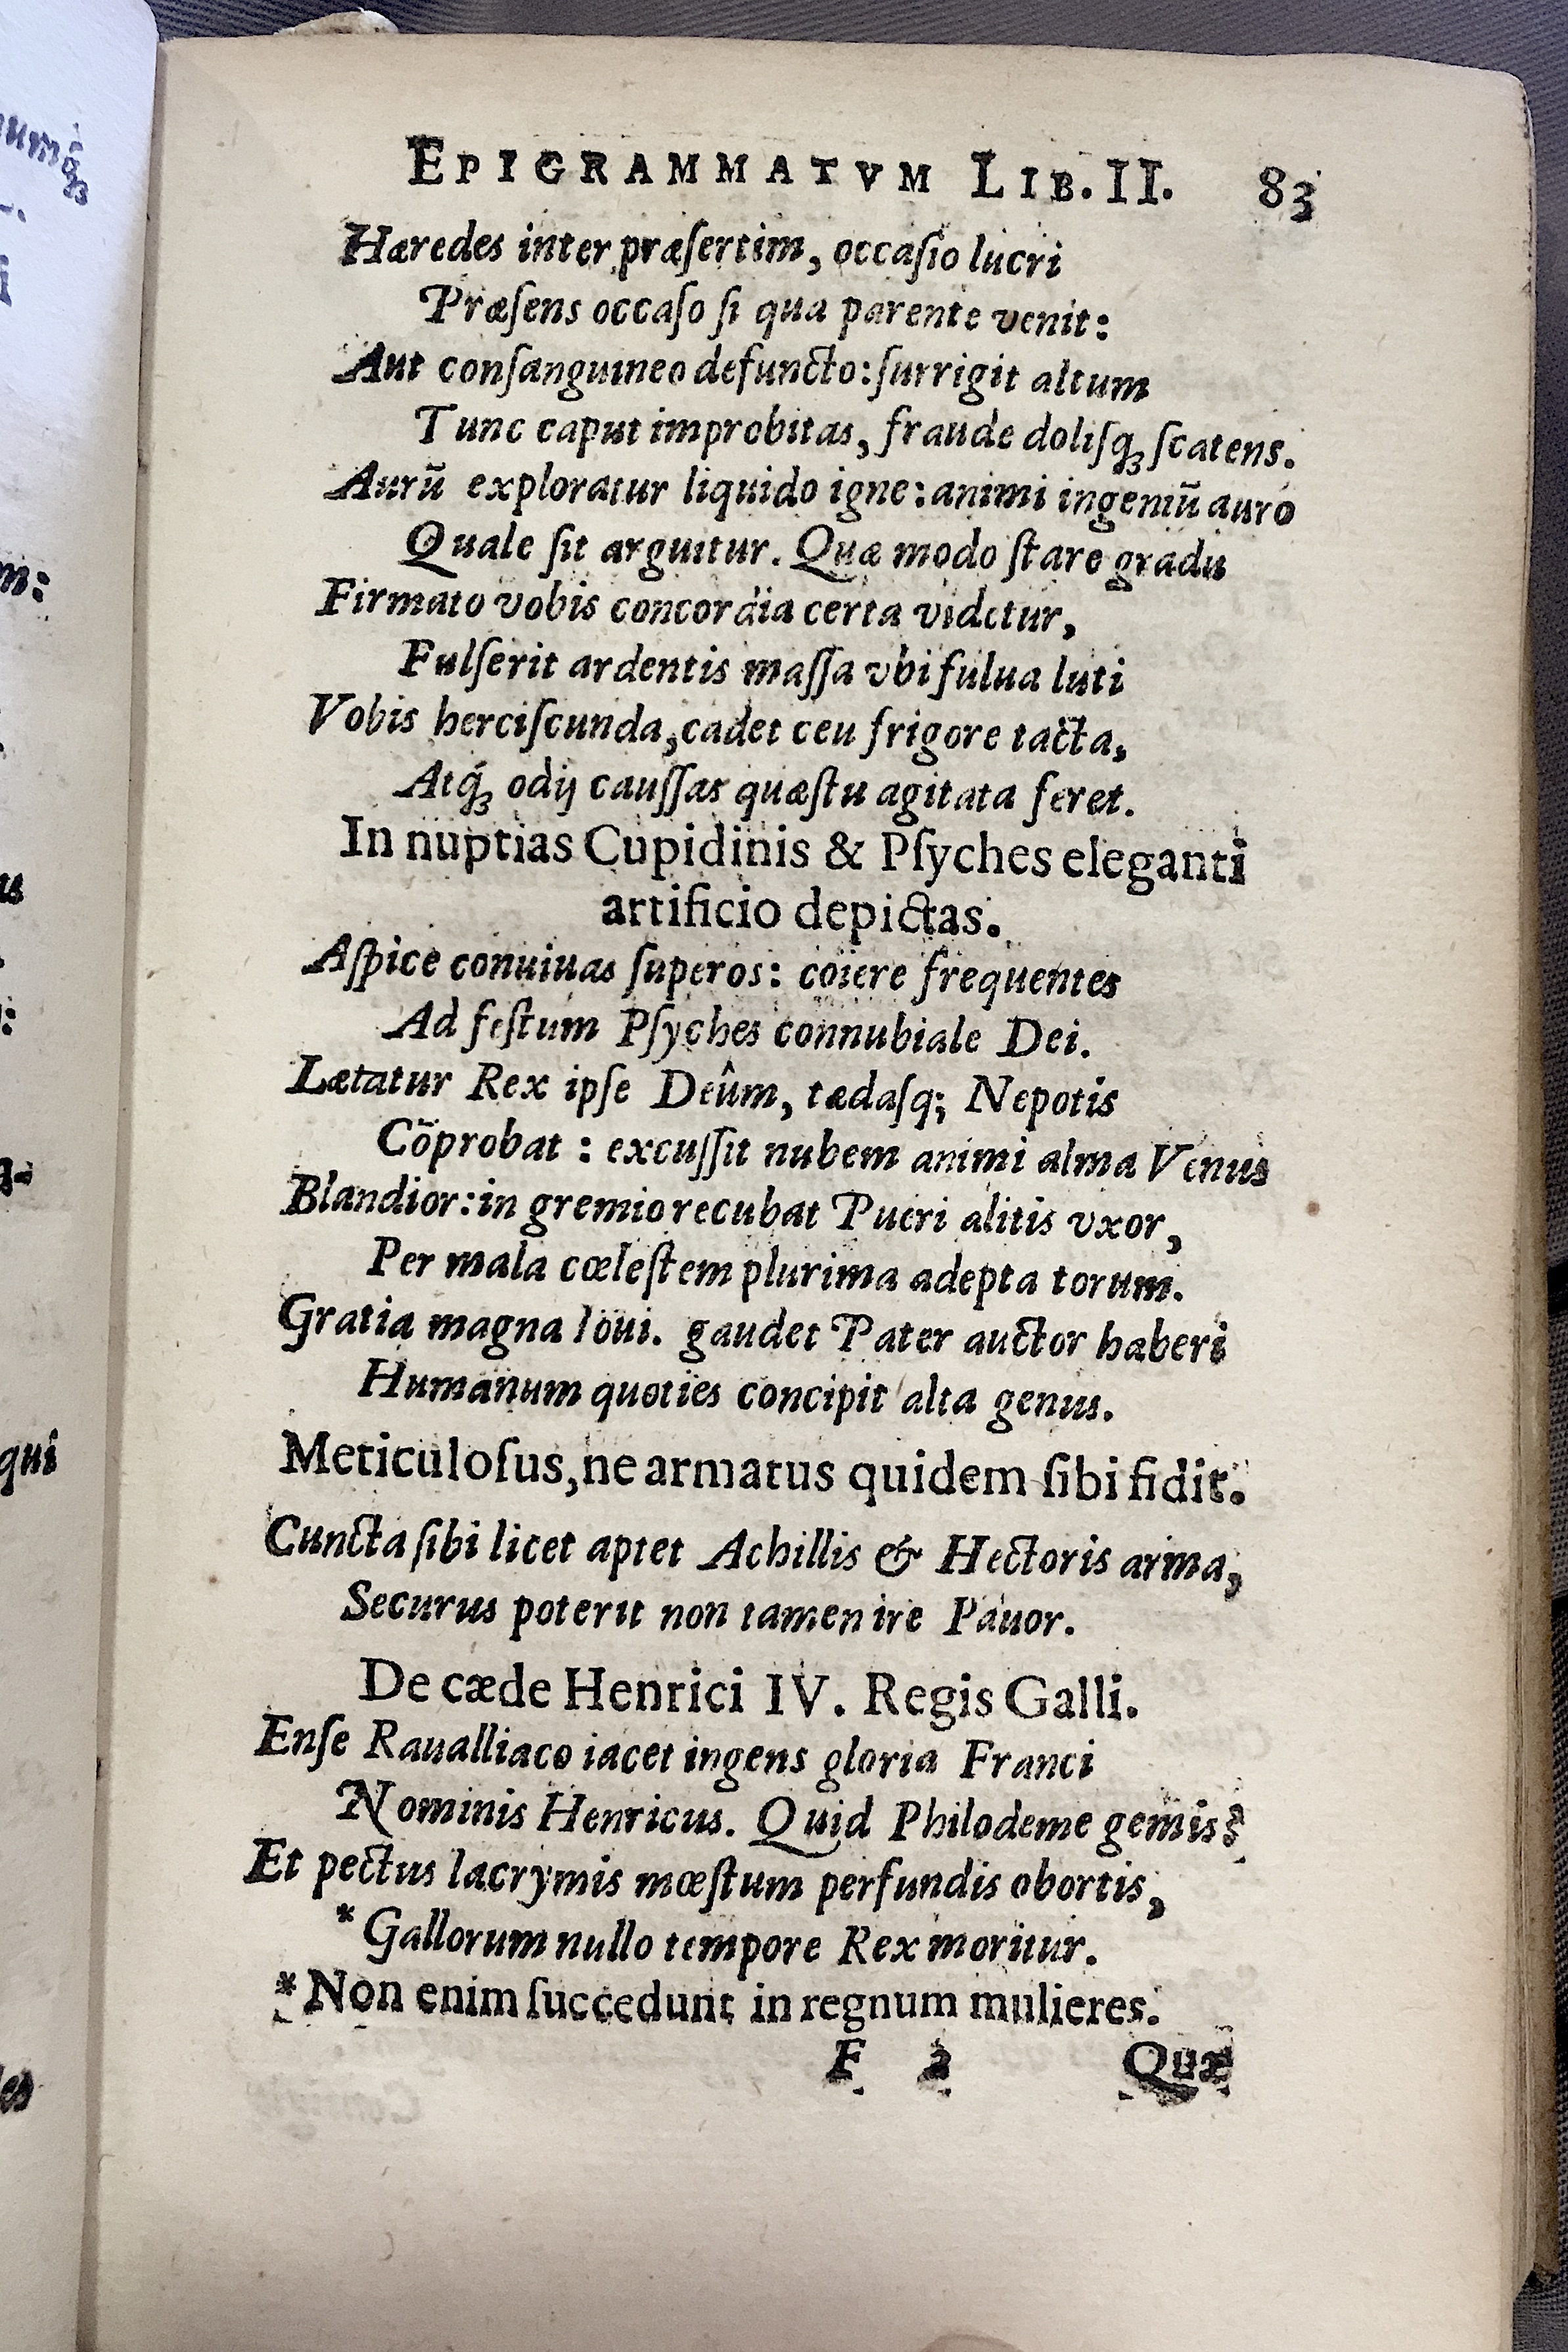 EPIGRAMMATVM LIB. II. 83
Hæredes inter præſertim, occaſio lucri
Præſens occaſo ſi qua parente venit:
Aut conſanguineo defuncto: ſurrigit altum
Tunc caput improbitas, fraude doliſqꝫ ſcatens.
Aurũ exploratur liquido igne: animi ingeniũ auro
Quale ſit arguitur. Quæ modo ſtare gradu
Firmato vobis concordia certa videtur,
Fulſerit ardentis maſſa vbi fulua luti
Vobis herciſcunda, cadet ceu frigore tacta,
Atq́ꝫ odij cauſſas quæſtu agitata feret.
In nuptias Cupidinis & Pſyches eleganti
artificio depictas.
Aſpice conuiuas ſuperos: coiere frequentes
Ad feſtum Pſyches connubiale Dei.
Lætatur Rex ipſe Deûm, tædaſq; Nepotis
Cõprobat: excuſſit nubem animi alma Venus
Blandior: in gremio recubat Pueri alitis vxor,
Per mala cœleſtem plurima adepta torum.
Gratia magna Ioui. gaudet Pater auctor haberi
Humanum quoties concipit alta genus.
Meticuloſus, ne armatus quidem ſibi fidit.
Cuncta ſibi licet aptet Achillis & Hectoris arma,
Securus poterit non tamen ire Pauor.
De cæde Henrici IV. Regis Galli.
Enſe Raualliaco iacet ingens gloria Franci
Nominis Henricus. Quid Philodeme gemis?
Et pectus lacrymis mœſtum perfundis obortis,
*Gallorum nullo tempore Rex moritur.
*Non enim ſuccedunt in regnum mulieres.
F 2 Quæ